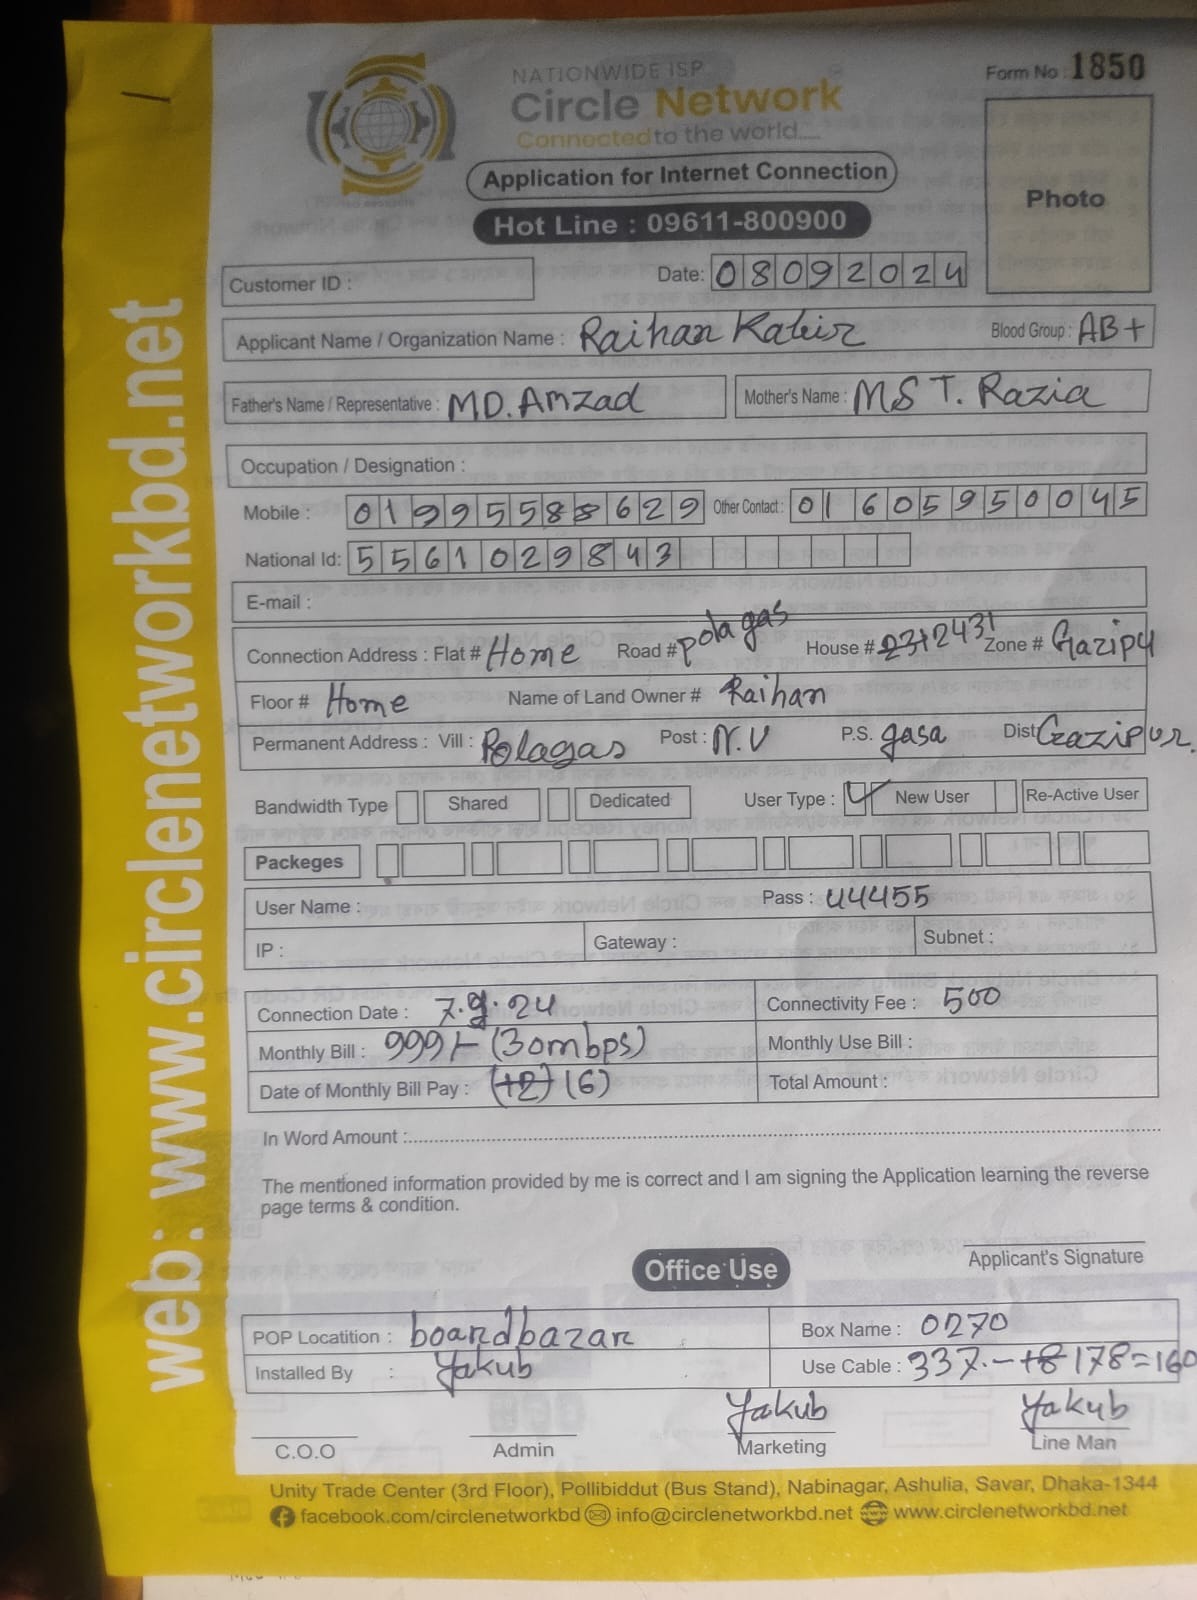 NATIONWIDE ISP
Circle Network
Connected to the world....
Form No : 1850
Application for Internet Connection
Hot Line : 09611-800900
Photo
Customer ID :
Date: 08092024
Applicant Name / Organization Name : Raihan Kabir
Blood Group : AB+
Father's Name / Representative : MD. Amzad
Mother's Name : MST. Razia
Occupation / Designation :
Mobile : 01995588629 Other Contact : 01605950045
National Id: 5561029843
E-mail :
Connection Address : Flat # Home Road # polagas House # Zone # Gazipu
Floor # Home Name of Land Owner # Raihan
Permanent Address : Vill : Polagas Post : N.U P.S. gasa Dist Gazipur.
Bandwidth Type Shared Dedicated User Type : New User Re-Active User
Packeges
User Name : Pass : 44455
IP : Gateway : Subnet :
Connection Date : 7.9.24 Connectivity Fee : 500
Monthly Bill : 999/- (30mbps) Monthly Use Bill :
Date of Monthly Bill Pay : (12) (6) Total Amount :
In Word Amount :
The mentioned information provided by me is correct and I am signing the Application learning the reverse
page terms & condition.
Applicant's Signature
Office Use
POP Locatition : boardbazar Box Name : 0270
Installed By : Yakub Use Cable : 337.-18 178=160
Yakub Yakub
C.O.O Admin Marketing Line Man
Unity Trade Center (3rd Floor), Pollibiddut (Bus Stand), Nabinagar, Ashulia, Savar, Dhaka-1344
facebook.com/circlenetworkbd info@circlenetworkbd.net www.circlenetworkbd.net
web: www.circlenetworkbd.net